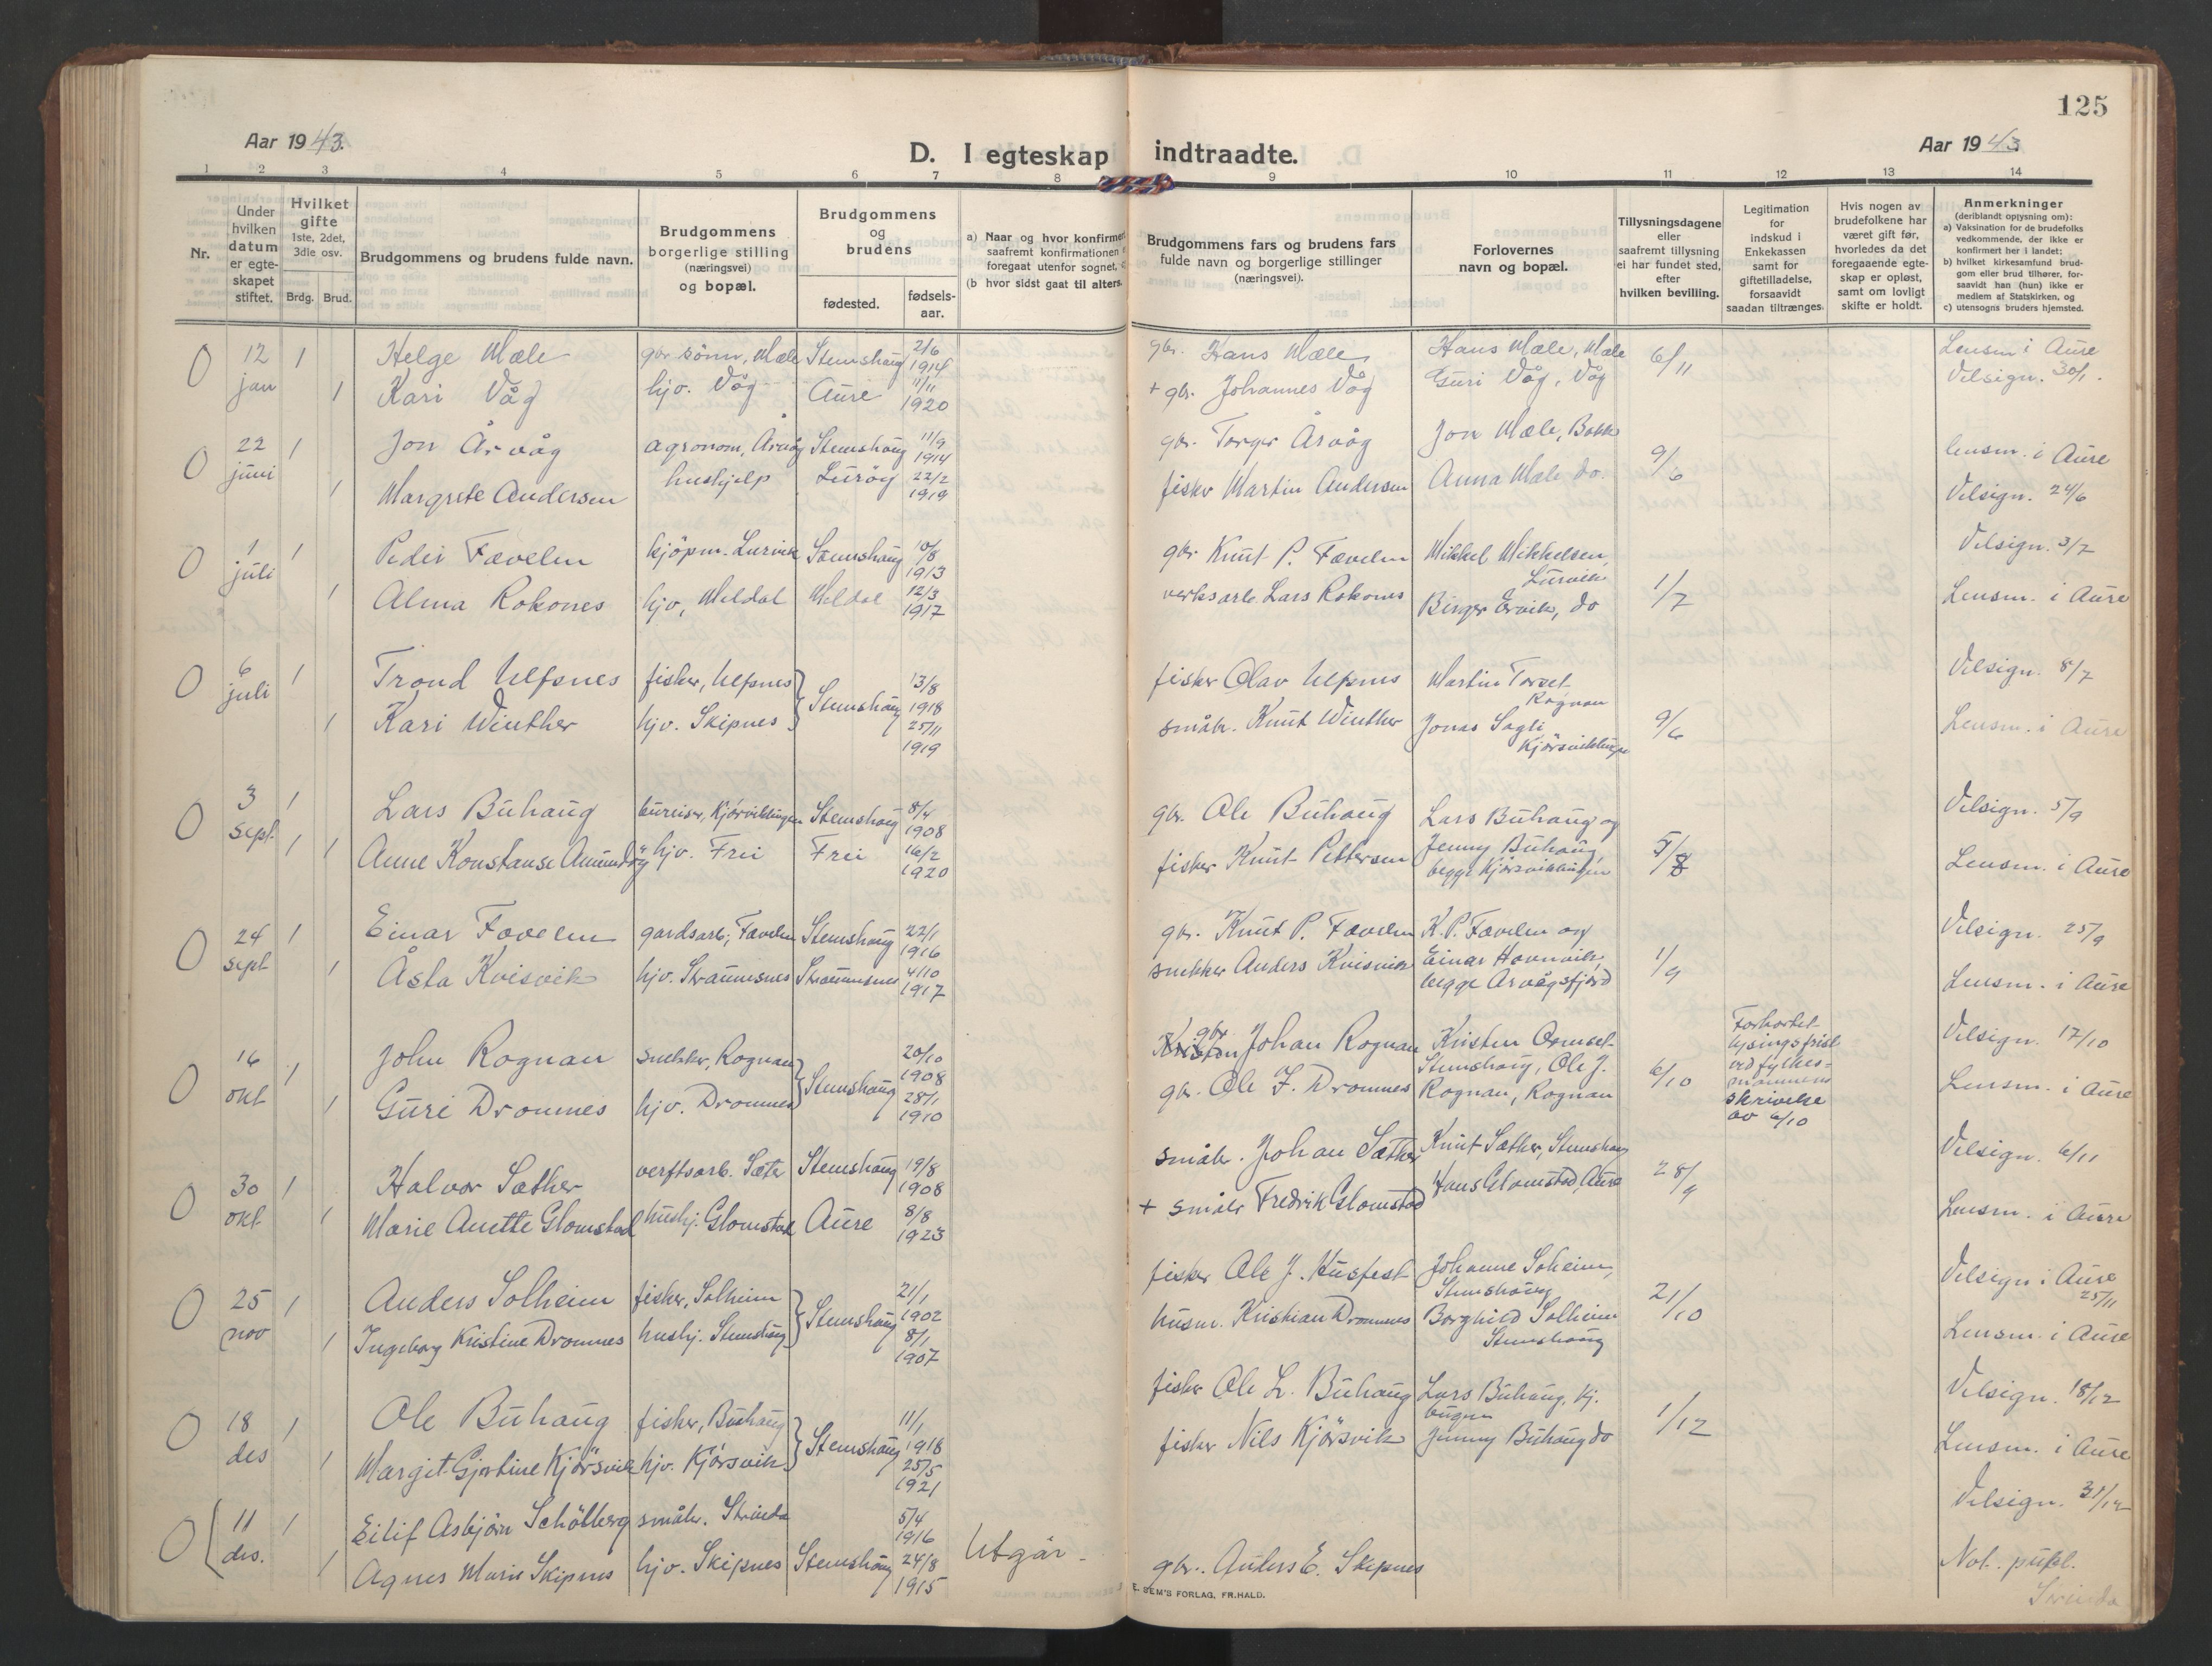 125
Aar 1943.
D. I egteskap indtraadte.
Aar 1943
1 2 3 4 5 6 7 8 9 10 11 12 13 14
Nr.
Under hvilken datum er egteskapet stiftet.
Hvilket gifte
1ste, 2det, 3die osv.
Brdg. Brud.
Brudgommens og brudens fulde navn.
Brudgommens borgerlige stilling (næringsvei) og bopæl.
Brudgommens og brudens
fødested.
fødselsaar.
a) Naar og hvor konfirmert
saafremt konfirmationen
foregaat utenfor sognet,
(b hvor sidst gaat til alters.
Brudgommens fars og brudens fars
fulde navn og borgerlige stillinger
(næringsvei).
Forlovernes
navn og bopæl.
Tillysningsdagene
eller
saafremt tillysning
ei har fundet sted,
efter
hvilken bevilling.
Legitimation
for
indskud i
Enkekassen
samt for
giftetilladelse,
forsaavidt
saadan tiltrænges.
Hvis nogen av
brudefolkene har
været gift før,
hvorledes da det
foregaaende egte-
skap er opløst,
samt om lovligt
skifte er holdt.
Anmerkninger
(deriblandt oplysning om):
a) Vaksination for de brudefolks
vedkommende, der ikke er
konfirmert her i landet;
b) hvilket kirkesamfund brud-
gom eller brud tilhører, for-
saavidt han (hun) ikke er
medlem af Statskirken, og
c) utensogns bruders hjemsted.
12 jan 1 Helge Mæle gbr. sønn, Mæle Stemshaug 2/6 1914 gbr. Hans Mæle Hans Mæle, Mæle 6/11 Lensm. i Aure
1 Kari Våg hjv. Våg Aure 11/11 1920 + gbr. Johannes Våg Guri Våg, Våg Velsign. 30/1.
22 juni 1 Jon Årvåg agronom, Årvåg Stemshaug 11/9 1914 gbr. Torger Årvåg Jon Mæle, Bakk 9/6 lensm. i Aure
1 Margrete Andersen hushjelp Lurøy 22/2 1919 fisker Martin Andersen Anna Mæle do. Velsign. 24/6
1 juli 1 Peder Fævelen kjöpm. Lurvik Stemshaug 10/8 1913 gbr. Knut P. Fævelen Mikkel Mikkelsen, Lurvik 1/7 Velsign. 3/7
1 Alma Rokones hjv, Meldal Meldal 12/3 1917 verksarb. Lars Rokones Birger Ervik, do Lensm. i Aure
6 juli 1 Trond Ulfsnes fisker, Ulfsnes Stemshaug 13/8 1918 fisker Olav Ulfsnes Martin Torset Rognan 9/6 Velsign. 8/7
1 Kari Winther hjv. Skipnes 25/11 1919 småbr. Knut Winther Jonas Sagli Kjörsvikbugen Lensm. i Aure
3 sept. 1 Lars Buhaug bureiser, Kjörsvikbugen Stemshaug 8/4 1908 gbr. Ole Buhaug Lars Buhaug og 5/8 Velsign. 5/9
1 1 Anne Konstanse Amundøy hjv. Frei Frei 16/2 1920 fisker Knut Pettersen Jenny Buhaug, begge Kjörsvikbugen Lensm. i Aure
24 sept 1 Einar Fævelen gardsarb; Fævelen Stemshaug 22/1 1916 gbr. Knut P. Fævelen K. P. Fævelen og 1/9 Velsign. 25/9
1 Åsta Kvisvik hjv. Straumsnes Straumsnes 4/10 1917 snekker Anders Kvisvik Einar Havnvik, begge Arvågsfjord Lensm. i Aure
16 okt 1 John Rognan snekker, Rognan Stemshaug 20/10 1908 gbr. Johan Rognan Kristen Ormset Stemshaug, Ole J. 6/10 Forkortet lysingsfrist ved fylkesmannens skrivelse av 6/10 Velsign. 17/10
1 Guri Dromnes hjv. Dromnes 28/1 1910 gbr. Ole J. Dromnes Rognan, Rognan Lensm. i Aure
30 okt 1 Halvor Sæther verftsarb. Sæter Stemshaug 19/8 1908 småbr. Johan Sæther Knut Sæther, Stemshaug 28/9 Velsign. 6/11
1 Marie Anette Glomstad hushj. Glomstad Aure 8/8 1923 + småbr Fredrik Glomstad Hans Glomstad, Aure Lensm. i Aure
25 nov 1 Anders Solheim fisker, Solheim Stemshaug 21/1 1902 fisker Ole J. Husfest Johanne Solheim, Stemshaug 21/10 Velsign i Aure 25/11
1 Ingeborg Kristine Dromnes hushj. Stemshaug 8/1 1907 husm. Kristian Dromnes Borghild Solheim Stemshaug Lensm. i Aure
18 des 1 Ole Buhaug fisker, Buhaug Stemshaug 11/1 1918 fisker Ole L. Buhaug Lars Buhaug, Kj. bugen 1/12 Velsign. 18/12
1 Margit Gjertine Kjörsvik hjv. Kjörsvik 25/5 1921 fisker Nils Kjörsvik Jenny Buhaug do Lensm. i Aure
11 des. 1 Eilif Asbjörn Schölberg småbr. Strinda 5/4 1916 Utgår - Velsign. 31/12
1 Agnes Marie Skipnes hjv. Skipnes Stemshaug 24/8 1915 gbr. Anders E. Skipnes Not. publ. Strinda
E. SEM'S FORLAG, FR.HALD.